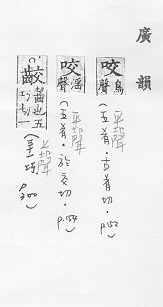 廣韻
咬 鳥聲
平聲
(五肴·古肴切·p.152
咬 淫聲
平聲
(五肴·於交切·p.154
齩 齧也五巧切一
上聲
(三十一巧
p.300)